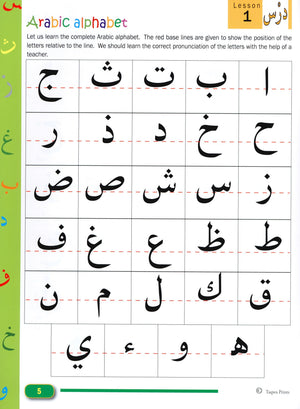 Arabic alphabet
Lesson 1 دَرْس
Let us learn the complete Arabic alphabet. The red base lines are given to show the position of the
letters relative to the line. We should learn the correct pronunciation of the letters with the help of a
teacher.
ا ب ت ث ج
ح خ د ذ ر
ز س ش ص ض
ط ظ ع غ ف
ق ك ل م ن
هـ و ء ي
ش
ث
غ
ب
د
ف
خ
و
5
© Tagwa Prints